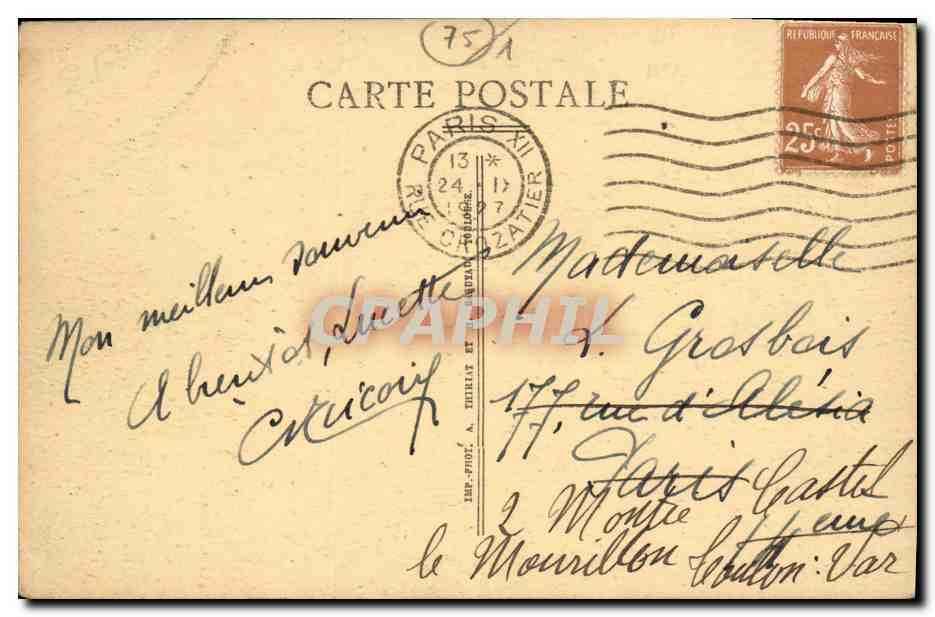 75
1
CARTE POSTALE
REPUBLIQUE FRANÇAISE
25c
POSTES
PARIS XII
13 *
24 - IX
1927
RUE CROZATIER
Mon meilleur souvenir
A bientôt, Lucette
IMP.-PHOT. A. THIRIAT ET TOULOUSE.
CPAPHIL
Mademoiselle
L. Grosbois
177, rue d'Alésia
Paris
2 Montée Castel
le Mourillon Toulon. Var